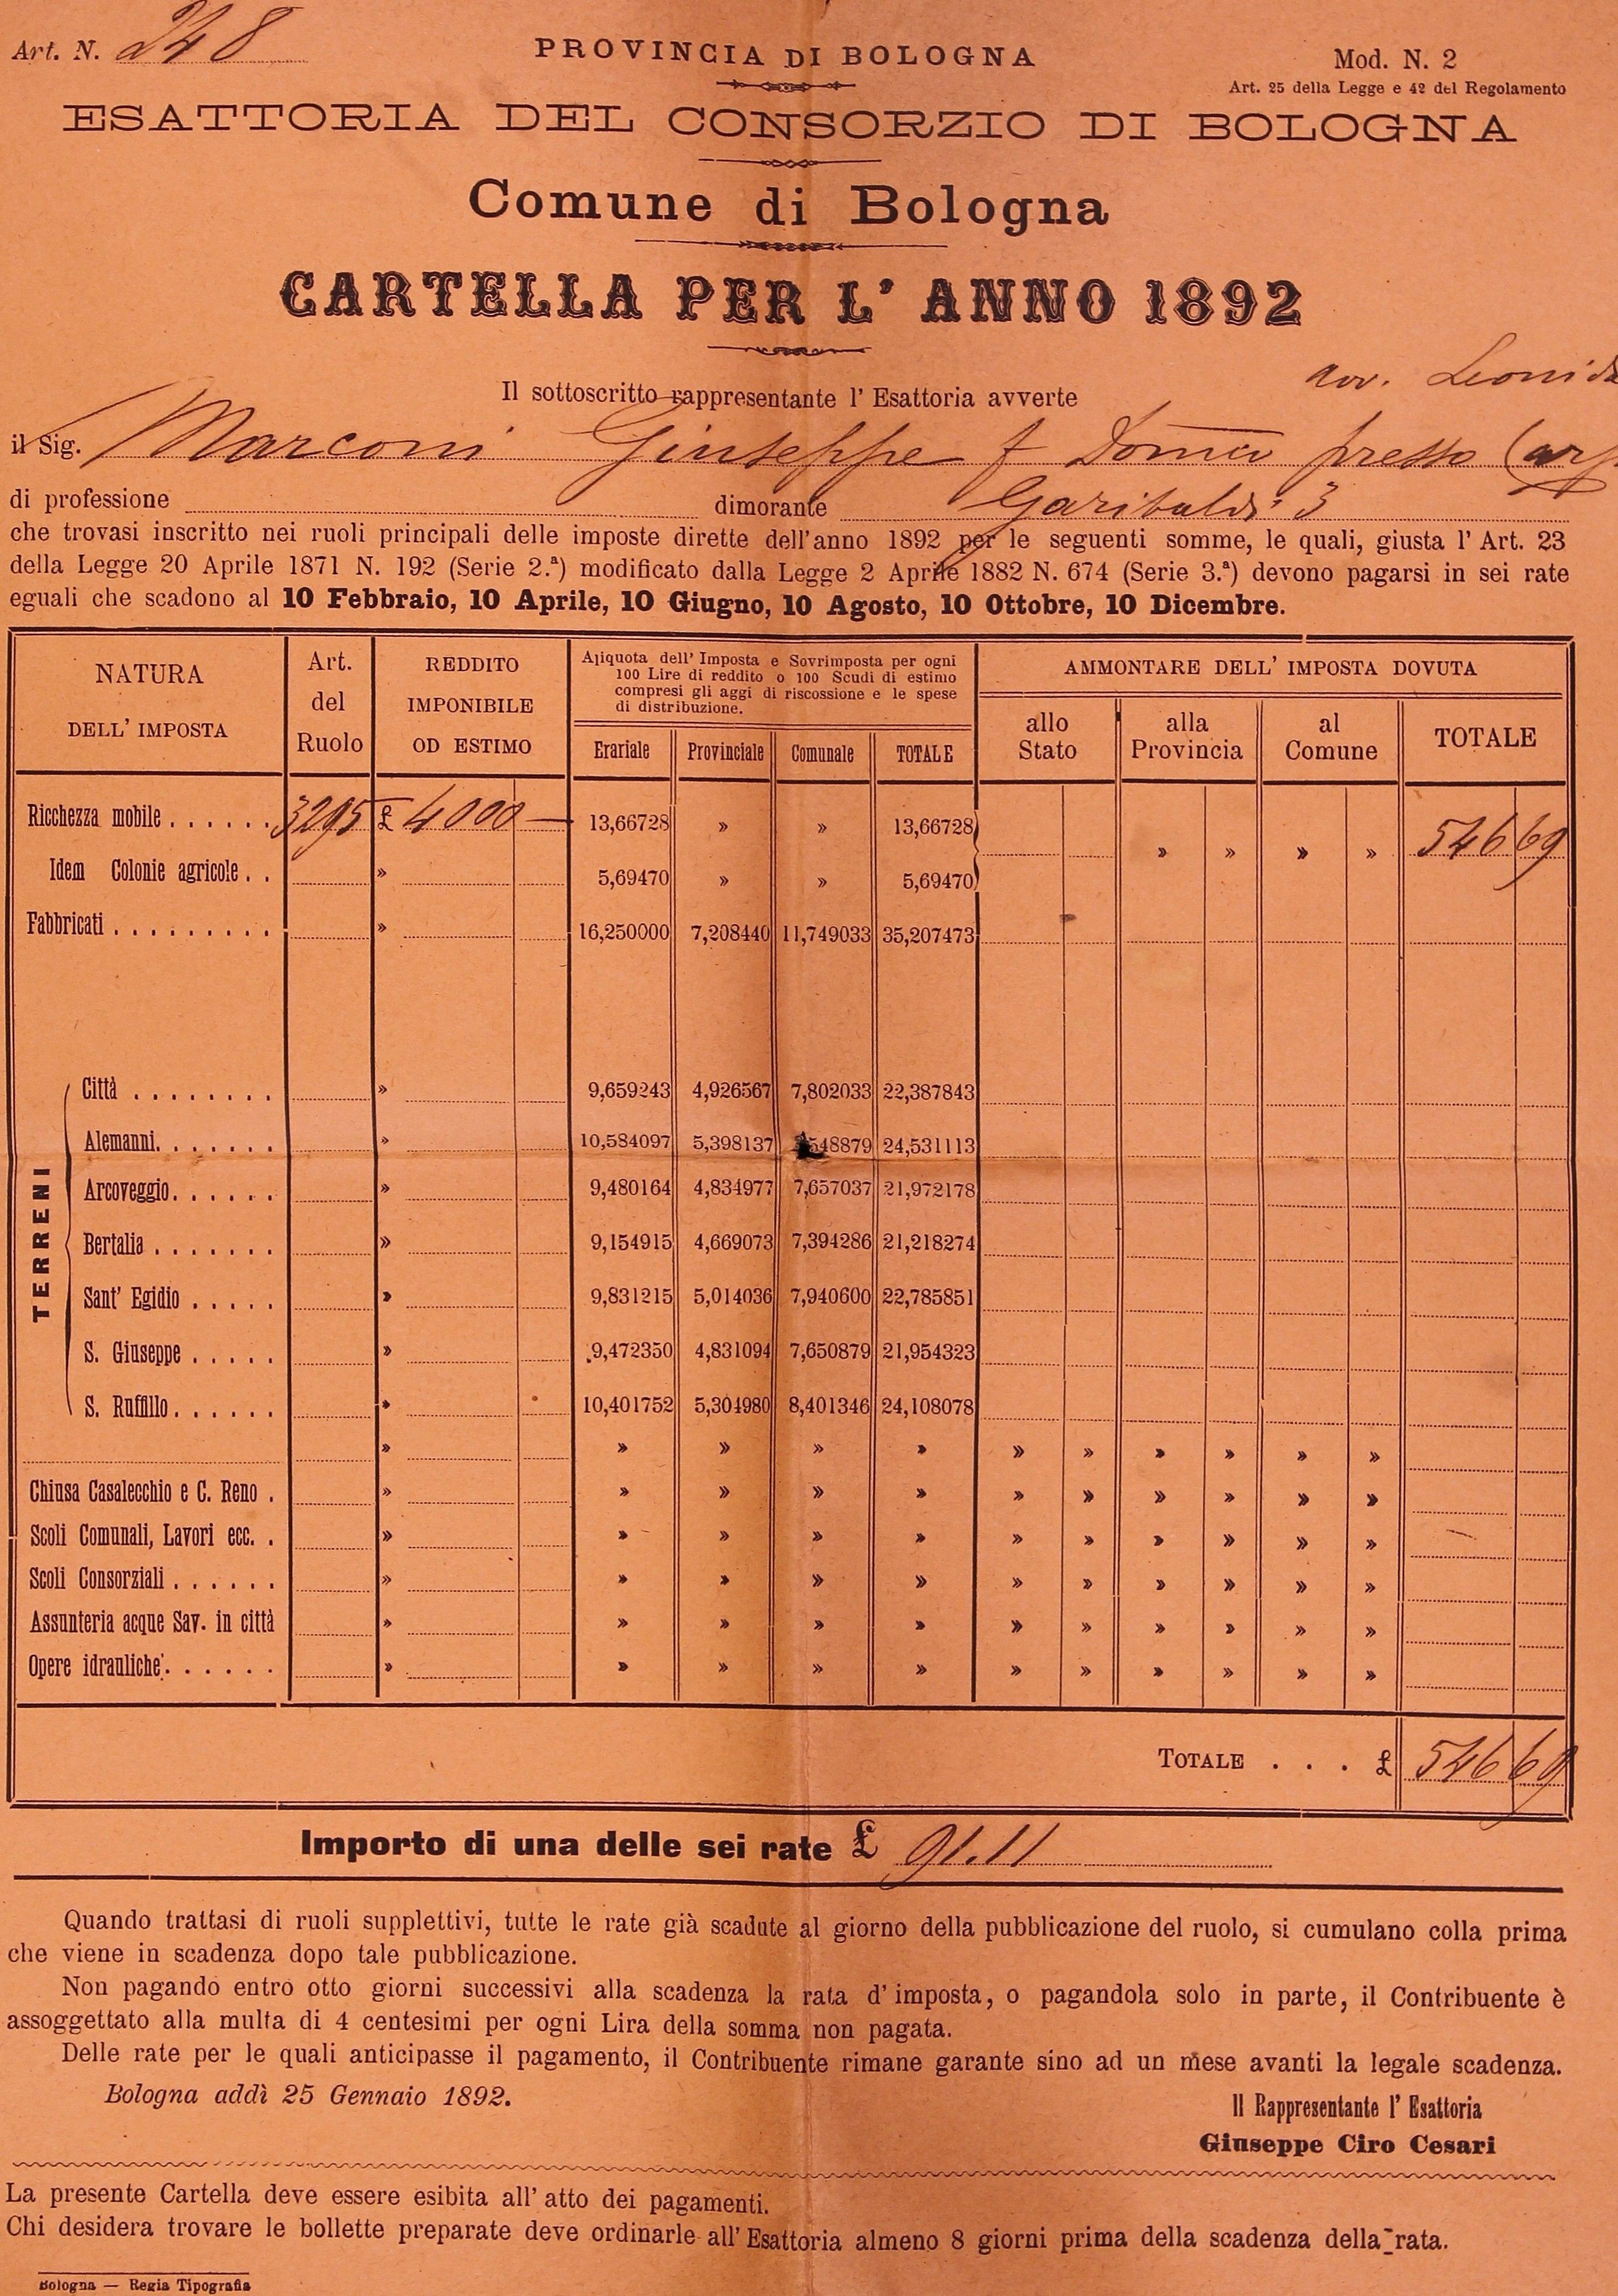 Art. N. 248
PROVINCIA DI BOLOGNA
Mod. N. 2
Art. 25 della Legge e 42 del Regolamento
ESATTORIA DEL CONSORZIO DI BOLOGNA
Comune di Bologna
CARTELLA PER L' ANNO 1892
Il sottoscritto rappresentante l' Esattoria avverte
Avv. Leonida
il Sig. Marconi Giuseppe f Domco presso
di professione dimorante Garibaldi 3
che trovasi inscritto nei ruoli principali delle imposte dirette dell'anno 1892 per le seguenti somme, le quali, giusta l' Art. 23
della Legge 20 Aprile 1871 N. 192 (Serie 2.ª) modificato dalla Legge 2 Aprile 1882 N. 674 (Serie 3.ª) devono pagarsi in sei rate
eguali che scadono al 10 Febbraio, 10 Aprile, 10 Giugno, 10 Agosto, 10 Ottobre, 10 Dicembre.
NATURA
DELL' IMPOSTA
Art.
del
Ruolo
REDDITO
IMPONIBILE
OD ESTIMO
Aliquota dell' Imposta e Sovrimposta per ogni
100 Lire di reddito o 100 Scudi di estimo
compresi gli aggi di riscossione e le spese
di distribuzione.
Erariale Provinciale Comunale TOTALE
AMMONTARE DELL' IMPOSTA DOVUTA
allo
Stato
alla
Provincia
al
Comune
TOTALE
Ricchezza mobile . . . . . . 3295 £ 4000 — 13,66728 » » 13,66728 » » » » 546 69
Idem Colonie agricole . . » 5,69470 » » 5,69470
Fabbricati . . . . . . . . . » 16,250000 7,208440 11,749033 35,207473
TERRENI
Città . . . . . . . . » 9,659243 4,926567 7,802033 22,387843
Alemanni. . . . . . . » 10,584097 5,398137 548879 24,531113
Arcoveggio. . . . . . » 9,480164 4,834977 7,657037 21,972178
Bertalia . . . . . . . » 9,154915 4,669073 7,394286 21,218274
Sant' Egidio . . . . . » 9,831215 5,014036 7,940600 22,785851
S. Giuseppe . . . . . » 9,472350 4,831094 7,650879 21,954323
S. Ruffillo. . . . . . » 10,401752 5,304980 8,401346 24,108078
» » » » » » » » » » »
Chiusa Casalecchio e C. Reno . » » » » » » » » » » »
Scoli Comunali, Lavori ecc. . » » » » » » » » » » »
Scoli Consorziali . . . . . . » » » » » » » » » » »
Assunteria acque Sav. in città » » » » » » » » » » »
Opere idrauliche. . . . . . » » » » » » » » » » »
TOTALE . . . £ 546 69
Importo di una delle sei rate £ 91.11
Quando trattasi di ruoli supplettivi, tutte le rate già scadute al giorno della pubblicazione del ruolo, si cumulano colla prima
che viene in scadenza dopo tale pubblicazione.
Non pagando entro otto giorni successivi alla scadenza la rata d' imposta, o pagandola solo in parte, il Contribuente è
assoggettato alla multa di 4 centesimi per ogni Lira della somma non pagata.
Delle rate per le quali anticipasse il pagamento, il Contribuente rimane garante sino ad un mese avanti la legale scadenza.
Bologna addì 25 Gennaio 1892.
Il Rappresentante l' Esattoria
Giuseppe Ciro Cesari
La presente Cartella deve essere esibita all' atto dei pagamenti.
Chi desidera trovare le bollette preparate deve ordinarle all' Esattoria almeno 8 giorni prima della scadenza della rata.
Bologna — Regia Tipografia